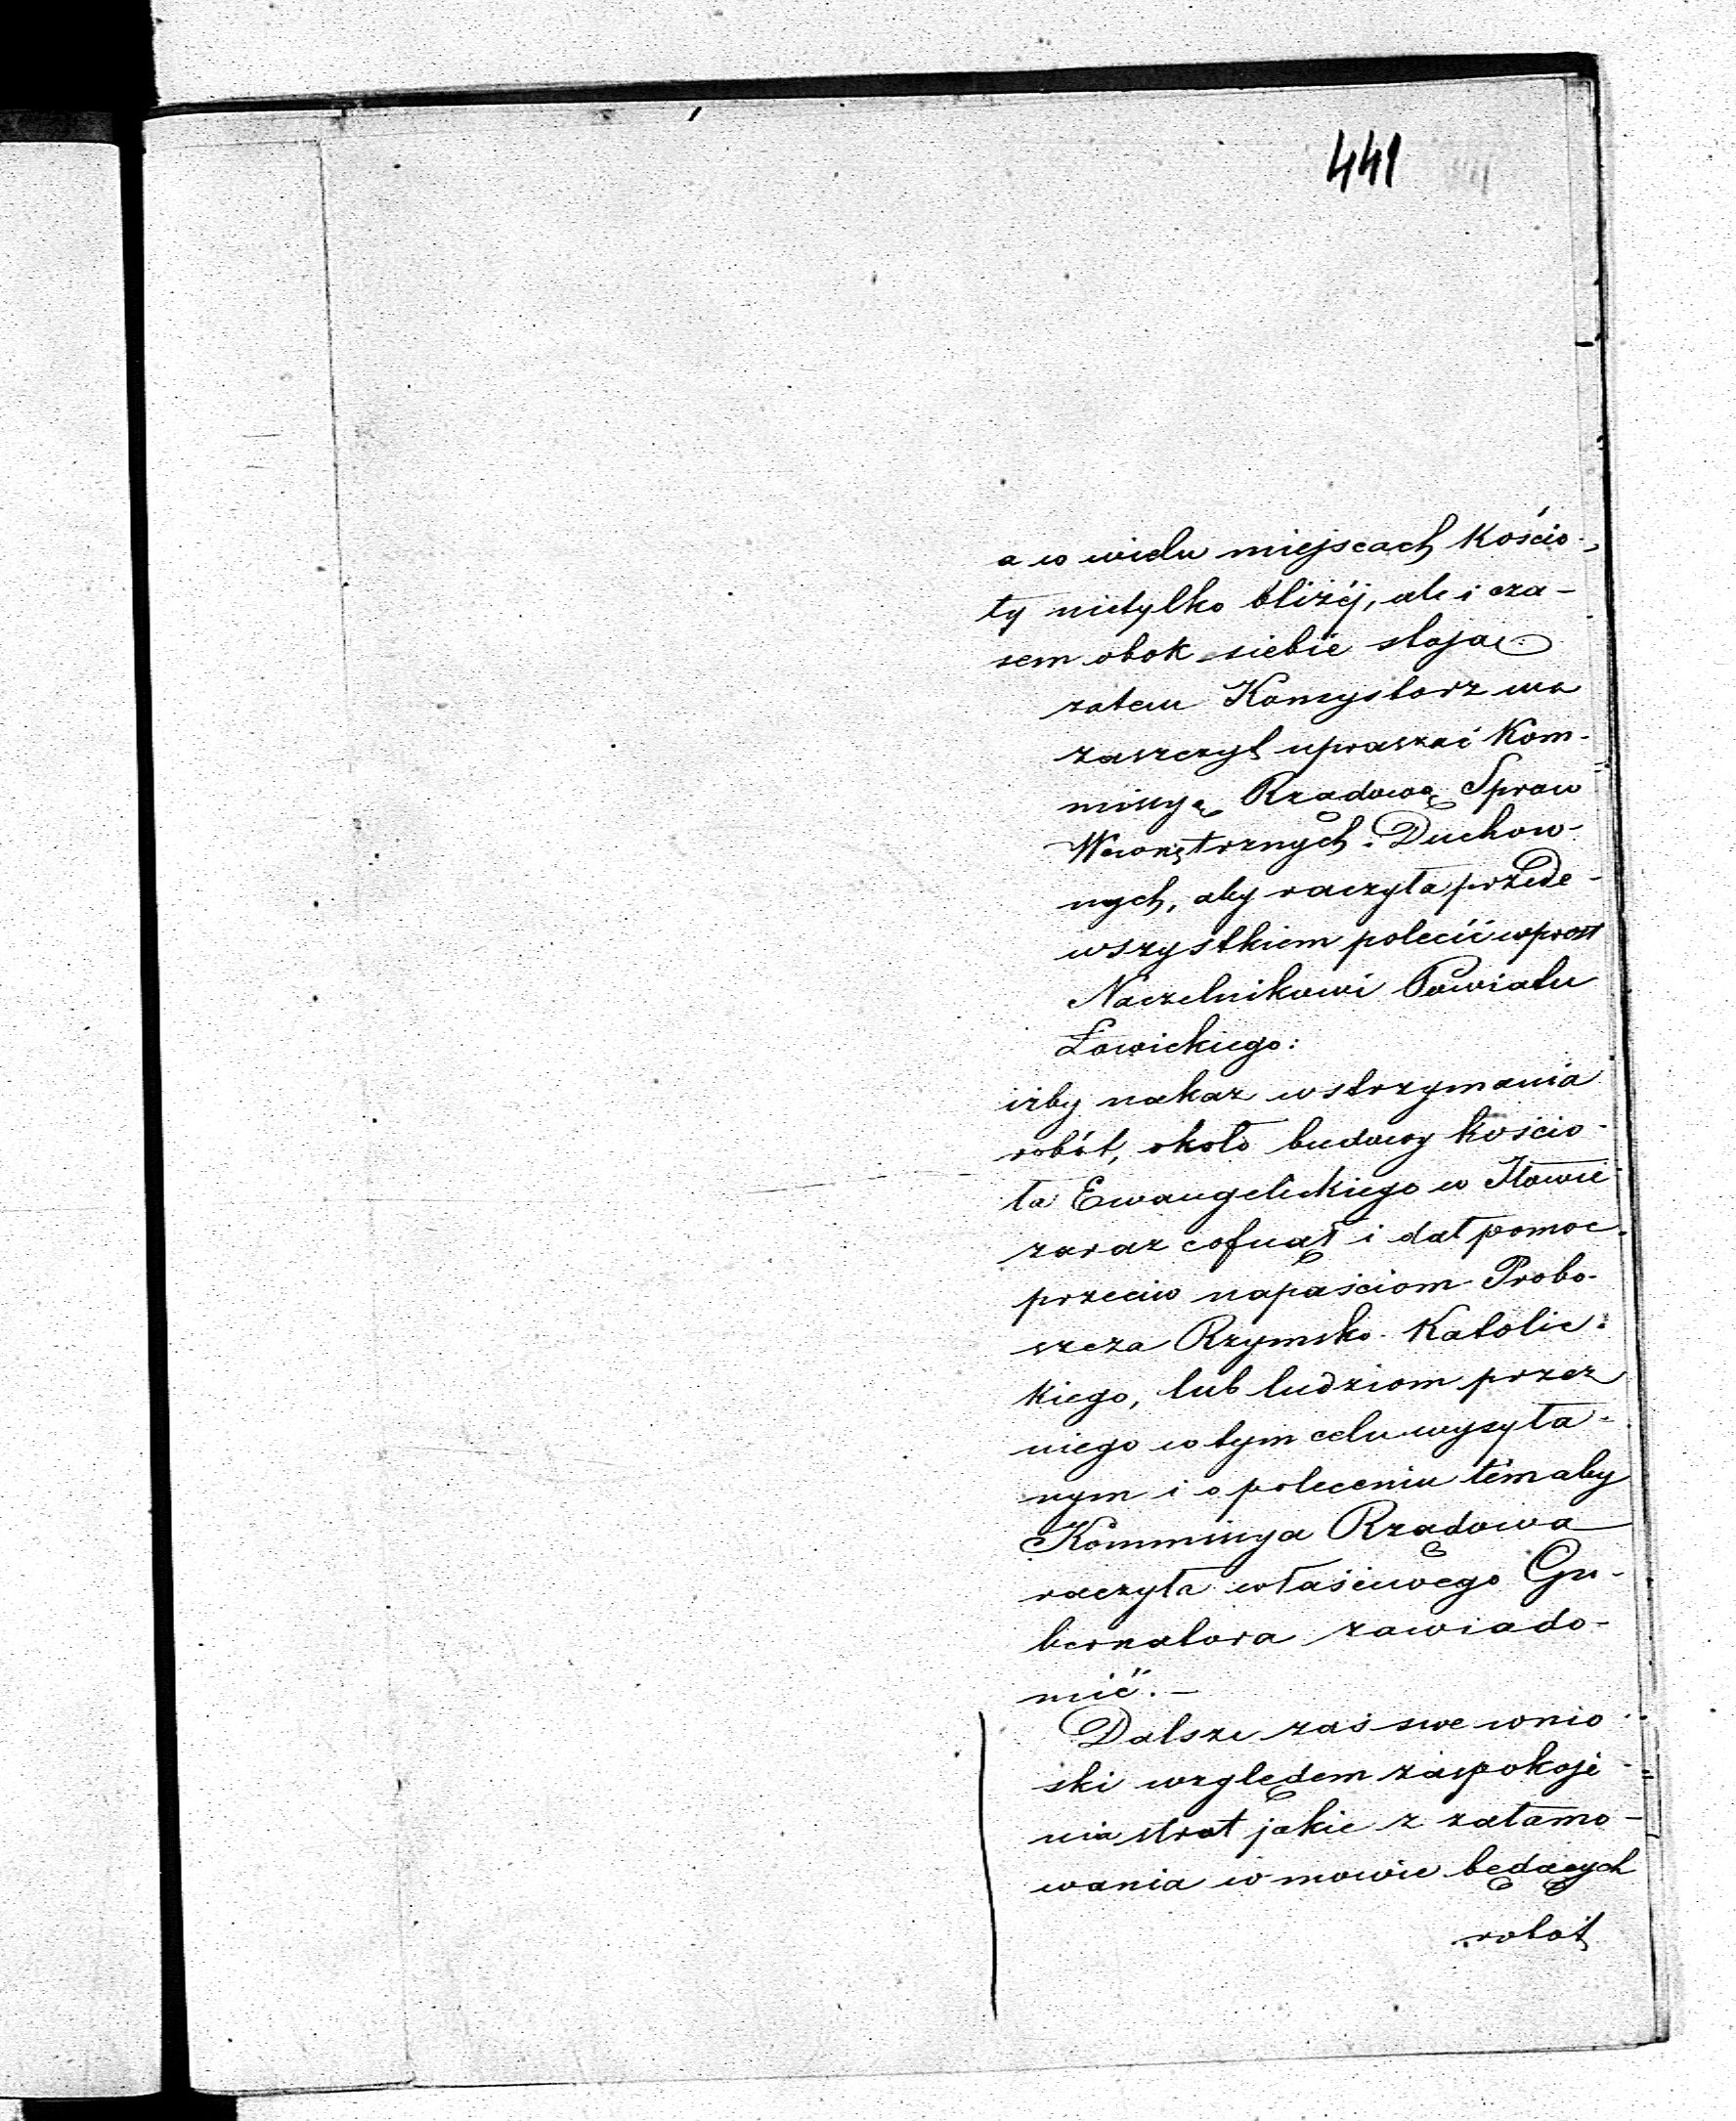 441
a w wielu miejscach Kościo-
ły nietylko bliżéj, ale i cza-
sem obok siebie stoją
zatem Konsystorz ma
zaszczyt upraszać Kom-
missyą Rządową Spraw
Wewnętrznych i Duchow-
nych, aby raczyła przede-
wszystkiem polecić wprost
Naczelnikowi Powiatu
Łowickiego:
iżby nakaz wstrzymania
robót, około budowy kościo-
ła Ewangelickiego w Iłowie
zaraz cofnął i dał pomoc
przeciw napaściom Probo-
szcza Rzymsko-Katolic-
kiego, lub ludziom przez
niego w tym celu wysyła-
nym i o poleceniu tém aby
Kommissya Rządowa
raczyła właściwego Gu-
bernatora zawiado-
mić.—
Dalsze zaś swe wnio-
ski względem zaspokoje-
nia strat jakie z zatamo-
wania w mowie będących
robót